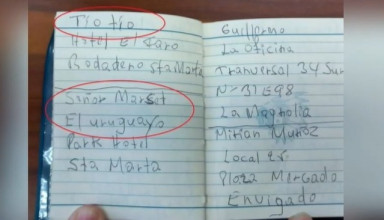 Tio tio
Hotel El Faro
Rodadero Sta Marta
Siñor Marset
El uruguayo
Park Hotel
Sta Marta
Guillermo
La oficina
Tranversal 34 Sur
N-31E98
La Magnolia
Mirian Muñoz
Local 28
Plaza Mercado
Envigado